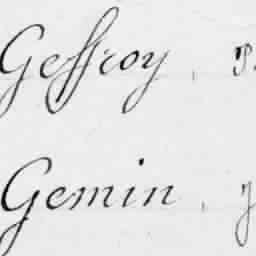 Geffroy,
Gemin,